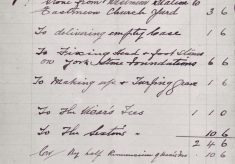 Stone from Weedmore Station to
Eastmeon Church Yard 3 6
To delivering empty Case 1 6
To Fixing Head & foot Stones
on York Stone Foundations 6 6
To Making up & Turfing Grave 1 6
To The Vicar's Fees 1 1 0
To The Sextons " 10 6
2 4 6
Cr. By half Commission